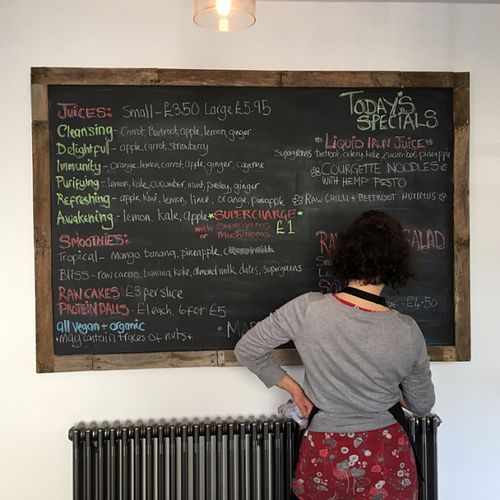 JUICES: Small - £3.50 Large £5.95
Cleansing - carrot, Beetroot, apple, lemon, ginger
Delightful - apple, carrot, strawberry
Immunity - orange, lemon, carrot, apple, ginger, cayenne
Purifying - lemon, kale, cucumber, mint, parsley, ginger
Refreshing - apple, kiwi, lemon, lime, orange, pineapple
Awakening - lemon kale, apple
*SUPERCHARGE*
with Supergreens
or Mushrooms
£1
SMOOTHIES:
Tropical - Mango, banana, pineapple,
Bliss - raw cacao, banana, kale, almond milk, dates, supergreens
RAW CAKES £3 per slice
PROTEIN BALLS - £1 each, 6 for £5
all vegan + organic
*May contain traces of nuts*
TODAY'S
SPECIALS
*LIQUID IRON JUICE*
Supergreens, beetroot, celery, kale, cucumber, pineapple
COURGETTE NOODLES
WITH HEMP PESTO
RAW CHILLI + BEETROOT HUMMUS
SALAD
£4.50